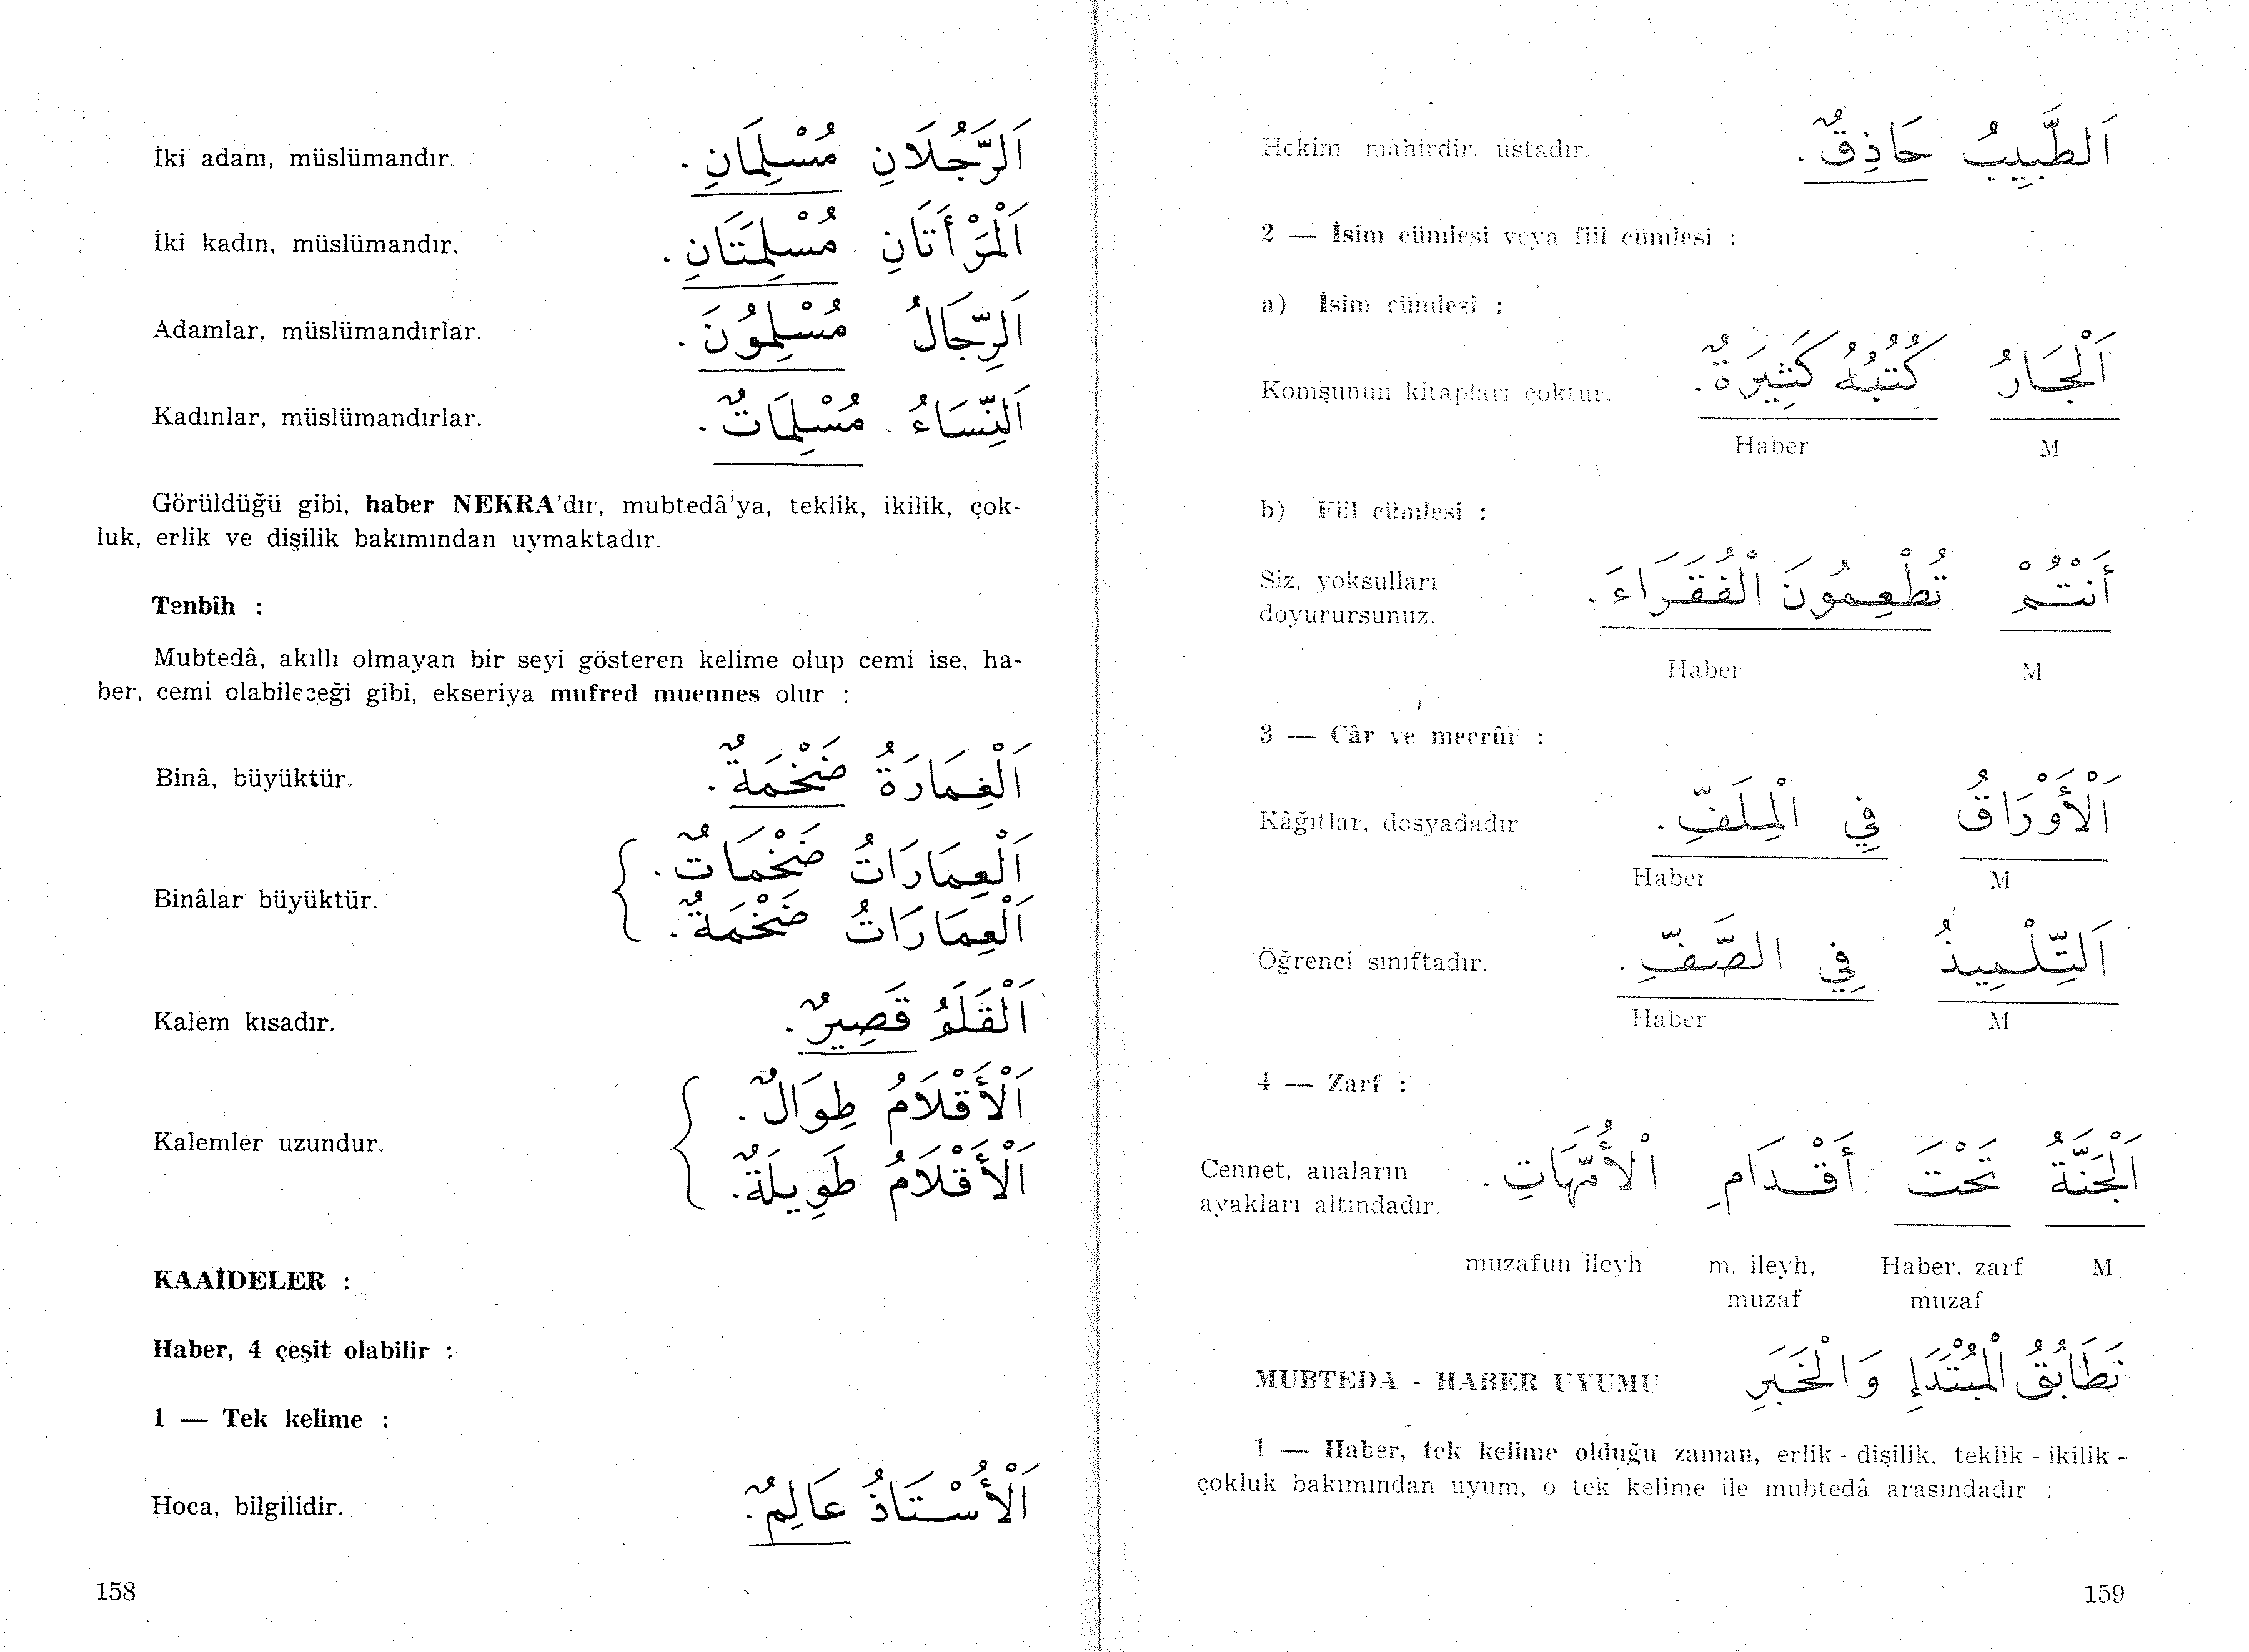 İki adam, müslümandır. اَلرَّجُلَانِ مُسْلِمَانِ .
İki kadın, müslümandır. اَلْمَرْأَتَانِ مُسْلِمَتَانِ .
Adamlar, müslümandırlar. اَلرِّجَالُ مُسْلِمُونَ .
Kadınlar, müslümandırlar. اَلنِّسَاءُ مُسْلِمَاتٌ .
Görüldüğü gibi, haber NEKRA'dır, mubtedâ'ya, teklik, ikilik, çok-
luk, erlik ve dişilik bakımından uymaktadır.
Tenbîh :
Mubtedâ, akıllı olmayan bir seyi gösteren kelime olup cemi ise, ha-
ber, cemi olabileceği gibi, ekseriya mufred muennes olur :
Binâ, büyüktür. اَلْعِمَارَةُ ضَخْمَةٌ .
Binâlar büyüktür. اَلْعِمَارَاتُ ضَخْمَاتٌ .
اَلْعِمَارَاتُ ضَخْمَةٌ .
Kalem kısadır. اَلْقَلَمُ قَصِيرٌ .
Kalemler uzundur. اَلْأَقْلَامُ طِوَالٌ .
اَلْأَقْلَامُ طَوِيلَةٌ .
KAAİDELER :
Haber, 4 çeşit olabilir :
1 — Tek kelime :
Hoca, bilgilidir. اَلْأُسْتَاذُ عَالِمٌ .
158
Hekim, mâhirdir, ustadır. اَلطَّبِيبُ حَاذِقٌ .
2 — İsim cümlesi veya fiil cümlesi :
a) İsim cümlesi :
Komşunun kitapları çoktur. اَلْجَارُ كُتُبُهُ كَثِيرَةٌ .
Haber M
b) Fiil cümlesi :
Siz, yoksulları أَنْتُمْ تُطْعِمُونَ الْفُقَرَاءَ .
doyurursunuz.
Haber M
3 — Câr ve mecrûr :
Kâğıtlar, dosyadadır. اَلْأَوْرَاقُ فِي الْمِلَفِّ .
Haber M
Öğrenci sınıftadır. اَلتِّلْمِيذُ فِي الصَّفِّ .
Haber M
4 — Zarf :
Cennet, anaların اَلْجَنَّةُ تَحْتَ أَقْدَامِ الْأُمَّهَاتِ .
ayakları altındadır.
muzafun ileyh m. ileyh, Haber, zarf M
muzaf muzaf
MUBTEDA - HABER UYUMU تَطَابُقُ الْمُبْتَدَإِ وَالْخَبَرِ
1 — Haber, tek kelime olduğu zaman, erlik - dişilik, teklik - ikilik -
çokluk bakımından uyum, o tek kelime ile mubtedâ arasındadır :
159